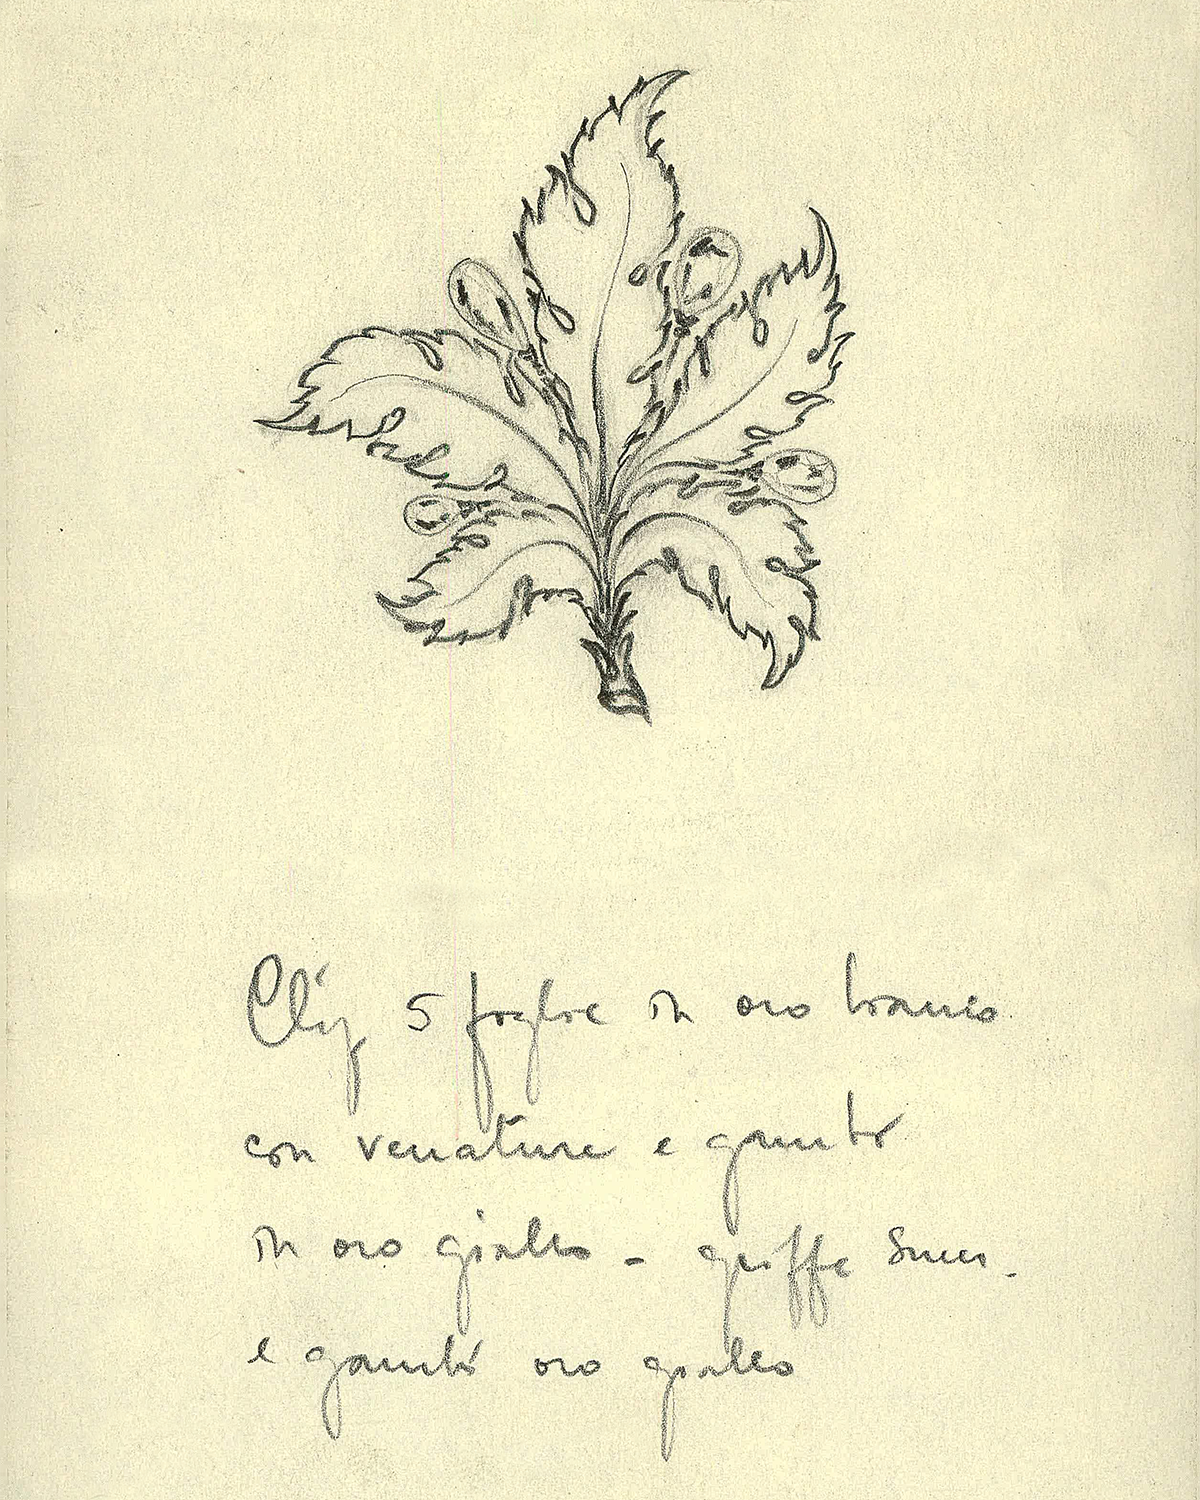 Clip 5 foglie in oro bianco
con venature e gambo
in oro giallo - griffe
e gambi oro giallo